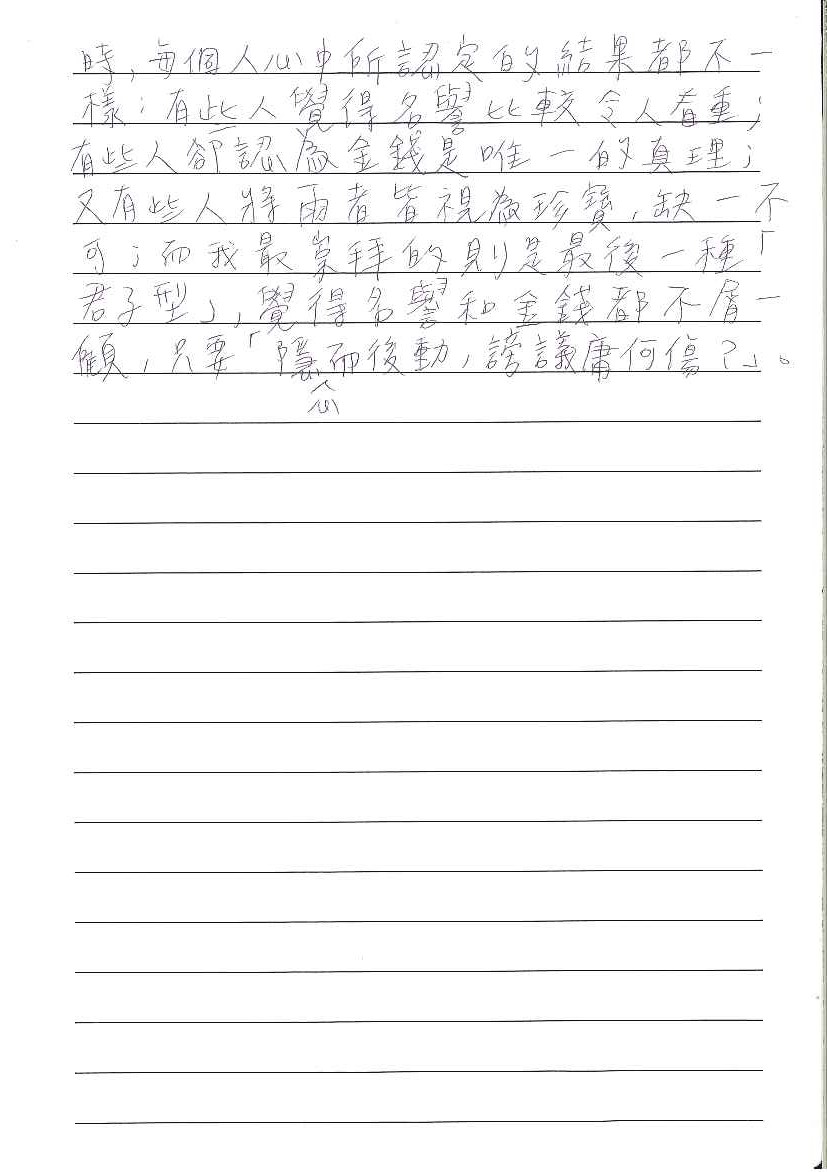 時,每個人心中所認定的結果都不一
樣:有些人覺得名譽比較令人看重;
有些人卻認為金錢是唯一的真理;
又有些人將兩者皆視為珍寶,缺一不
可;而我最崇拜的則是最後一種「
君子型」,覺得名譽和金錢都不屑一
顧,只要「隱心而後動,謗議庸何傷?」。